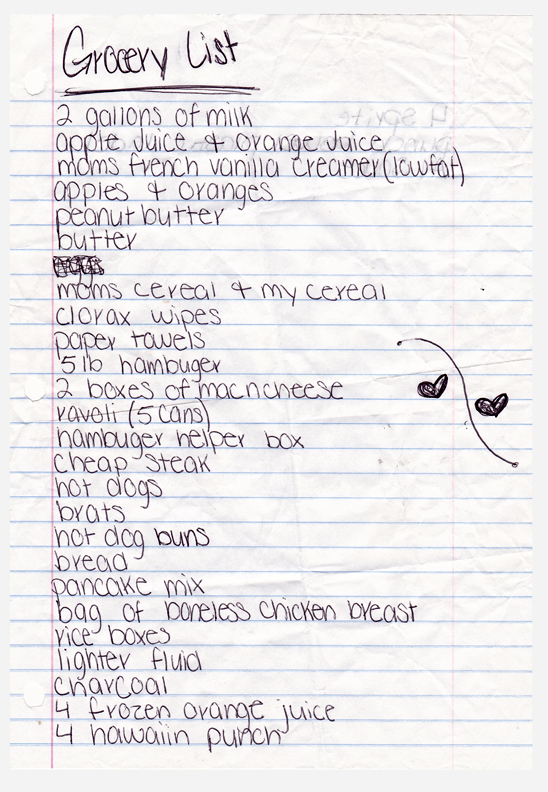 Grocery List
2 gallons of milk
apple juice & orange juice
moms french vanilla creamer (lowfat)
apples & oranges
peanut butter
butter
moms cereal & my cereal
clorax wipes
paper towels
5 lb hambuger
2 boxes of macncheese
ravoli (5 cans)
hambuger helper box
cheap steak
hot dogs
brats
hot dog buns
bread
pancake mix
bag of boneless chicken breast
rice boxes
lighter fluid
charcoal
4 frozen orange juice
4 hawaiin punch